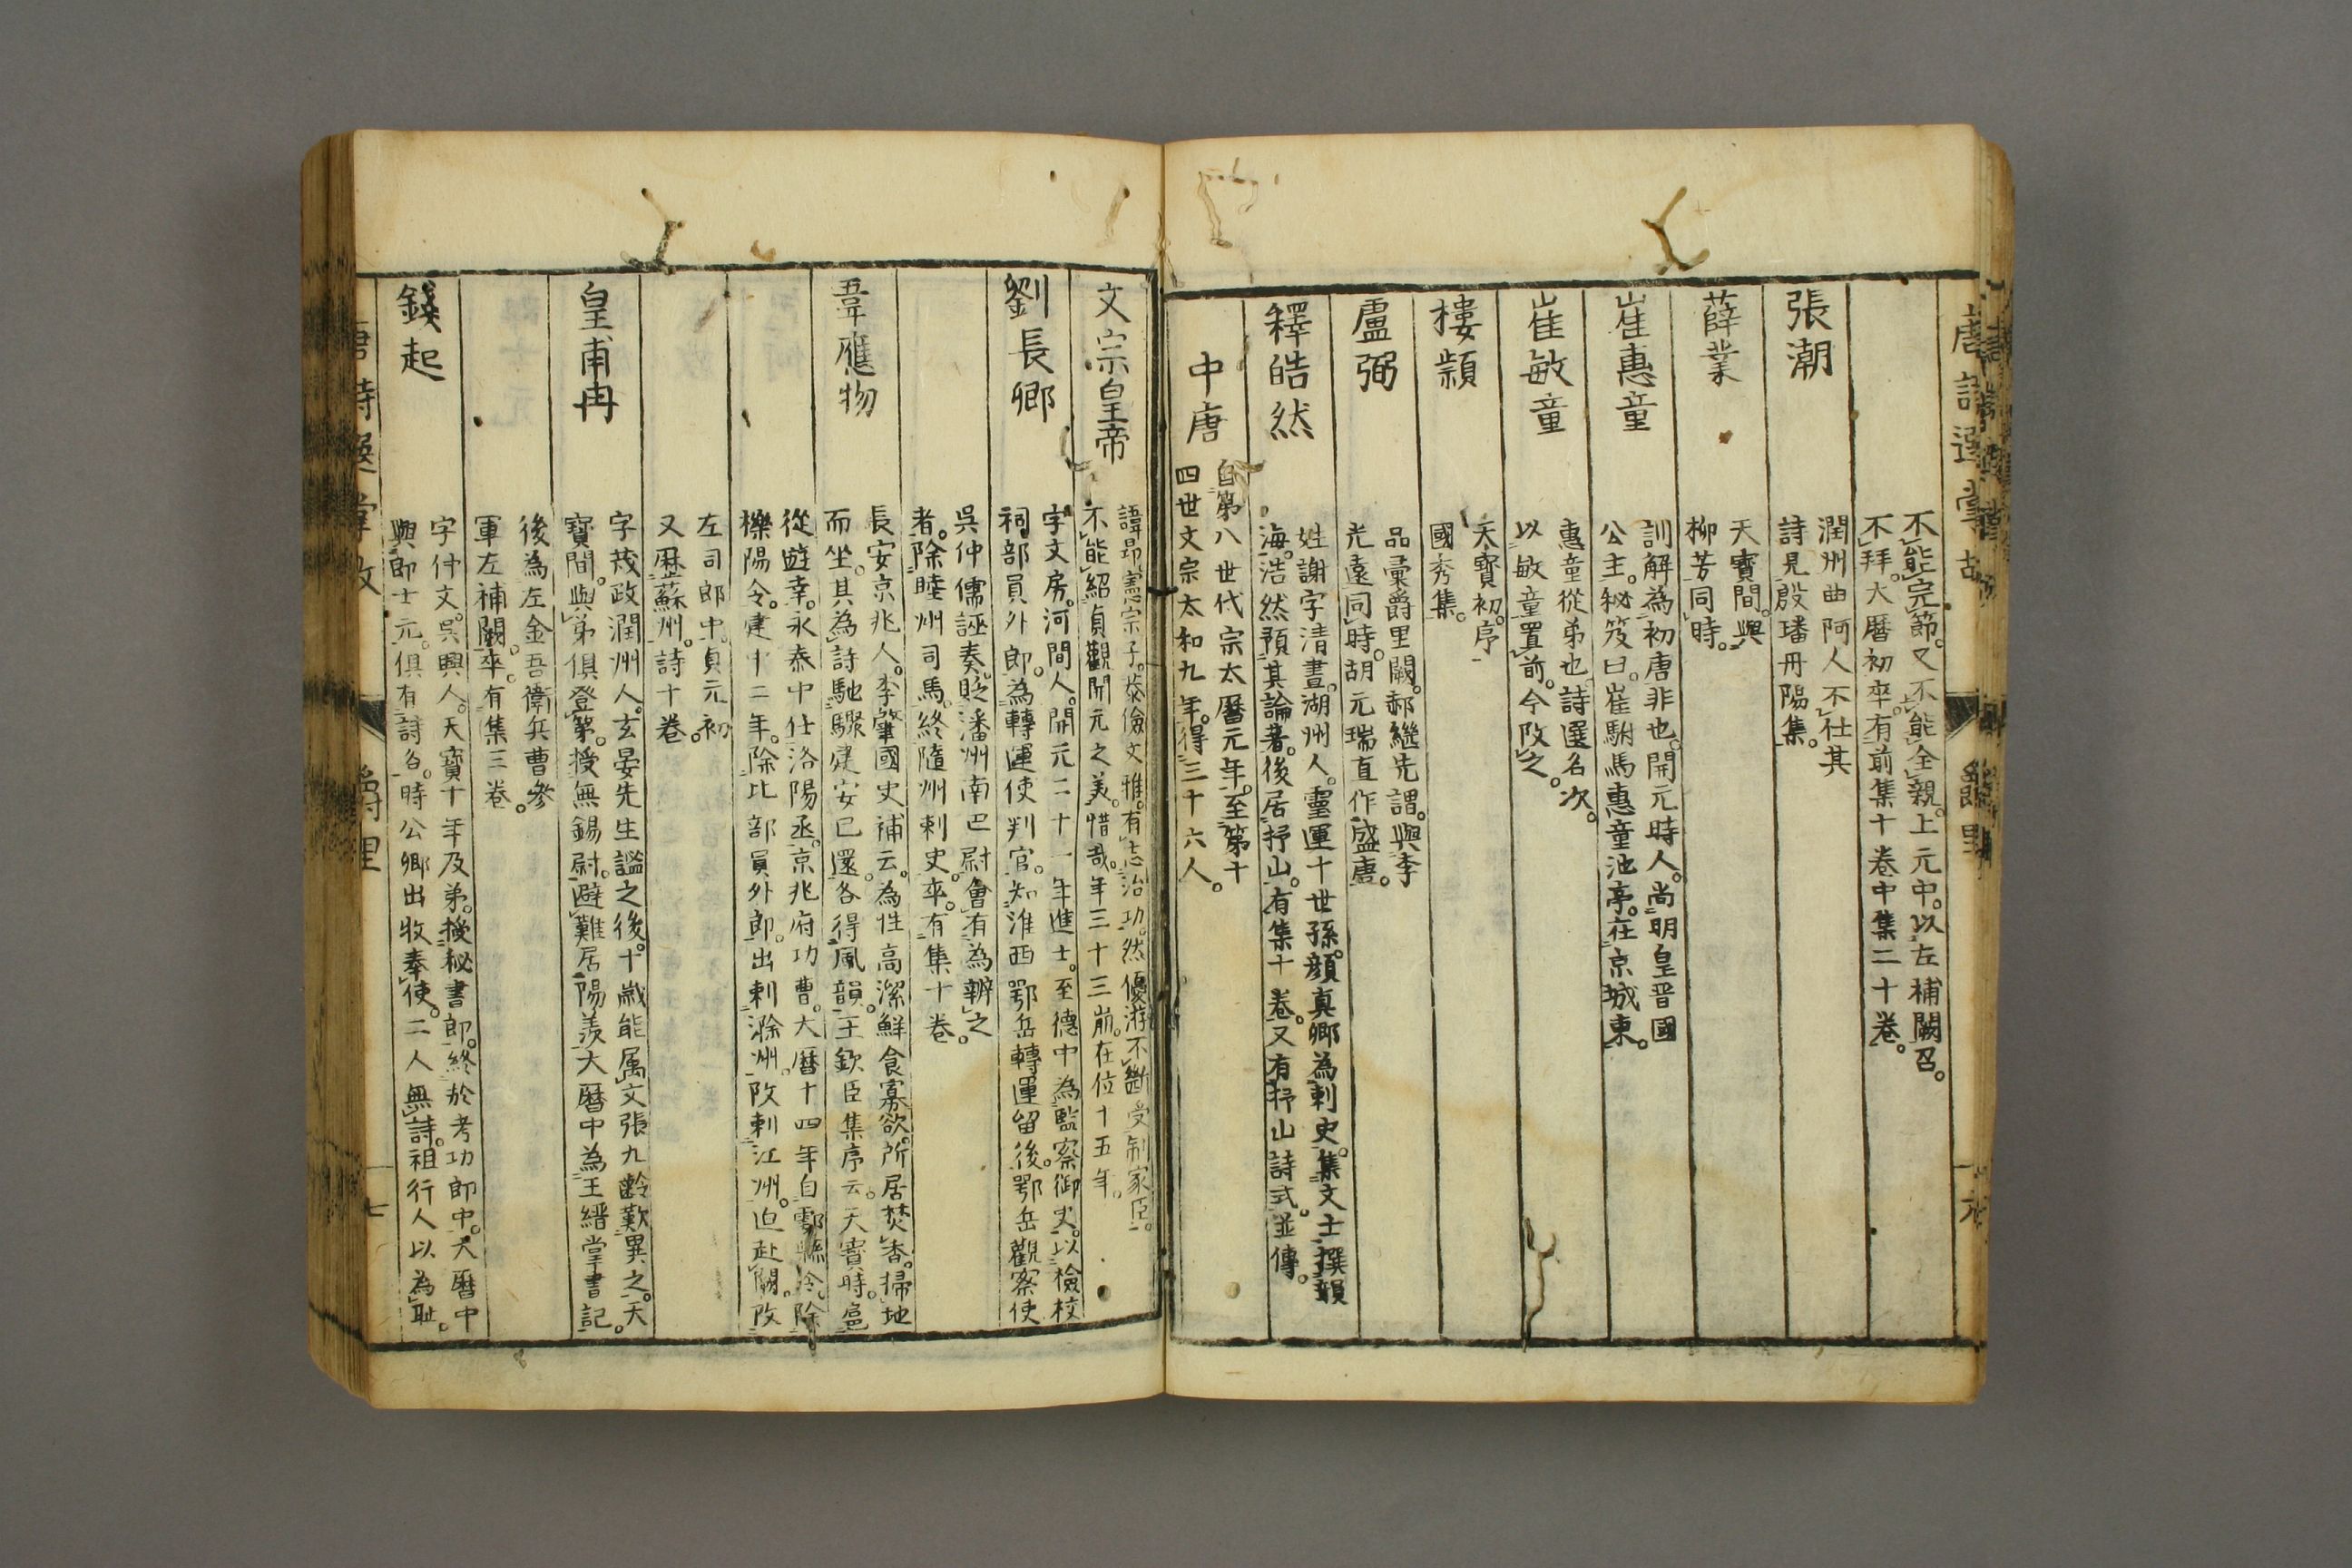 不能完節又不能全親上元中以左補闕召
不拜大曆初卒有前集十卷中集二十卷
張潮
潤州曲阿人不仕其
詩見殷璠丹陽集
薛業
天寶間與
柳芳同時
崔惠童
訓解為初唐非也開元時人尚明皇晋國
公主秘笈曰崔駙馬惠童池亭在京城東
崔敏童
惠童從弟也詩選名次
以敏童置前今改之
樓頴
天寶初序
國秀集
盧弼
品彙爵里闕郝継先謂與李
光遠同時胡元瑞直作盛唐
釋皓然
姓謝字清晝湖州人靈運十世孫顔真卿為刺史集文士撰韻
海浩然預其論著後居抒山有集十卷又有抒山詩式並傳
中唐
自第八世代宗太曆元年至第十
四世文宗太和九年得三十六人
文宗皇帝
諱昻憲宗子恭儉文雅有志治功然優游不斷受制家臣
不能紹貞觀開元之美惜哉年三十三崩在位十五年
劉長卿
字文房河間人開元二十一年進士至德中為監察御史以檢校
祠部員外郎為轉運使判官知淮西鄂岳轉運留後鄂岳觀察使
吳仲儒誣奏貶潘州南巴尉會有為辨之
者除睦州司馬終隨州刺史卒有集十卷
韋應物
長安京兆人李肇國史補云為性高潔鮮食寡欲所居焚香掃地
而坐其為詩馳驟建安已還各得風韻王欽臣集序云天寶時扈
從遊幸永泰中仕洛陽丞京兆府功曹大曆十四年自鄠縣令除
櫟陽令建十二年除比部員外郎出刺滁州改刺江州追赴闕改
左司郎中貞元初
又歷蘇州詩十卷
皇甫冉
字茂政潤州人玄晏先生謐之後十歲能属文張九齡歎異之天
寶間與弟俱登第授無錫尉避難居陽羨大曆中為王縉掌書記
後為左金吾衛兵曹參
軍左補闕卒有集三卷
錢起
字仲文吳興人天寶十年及弟授秘書郎終於考功郎中大曆中
與郎士元俱有詩名時公卿出牧奉使二人無詩祖行人以為耻